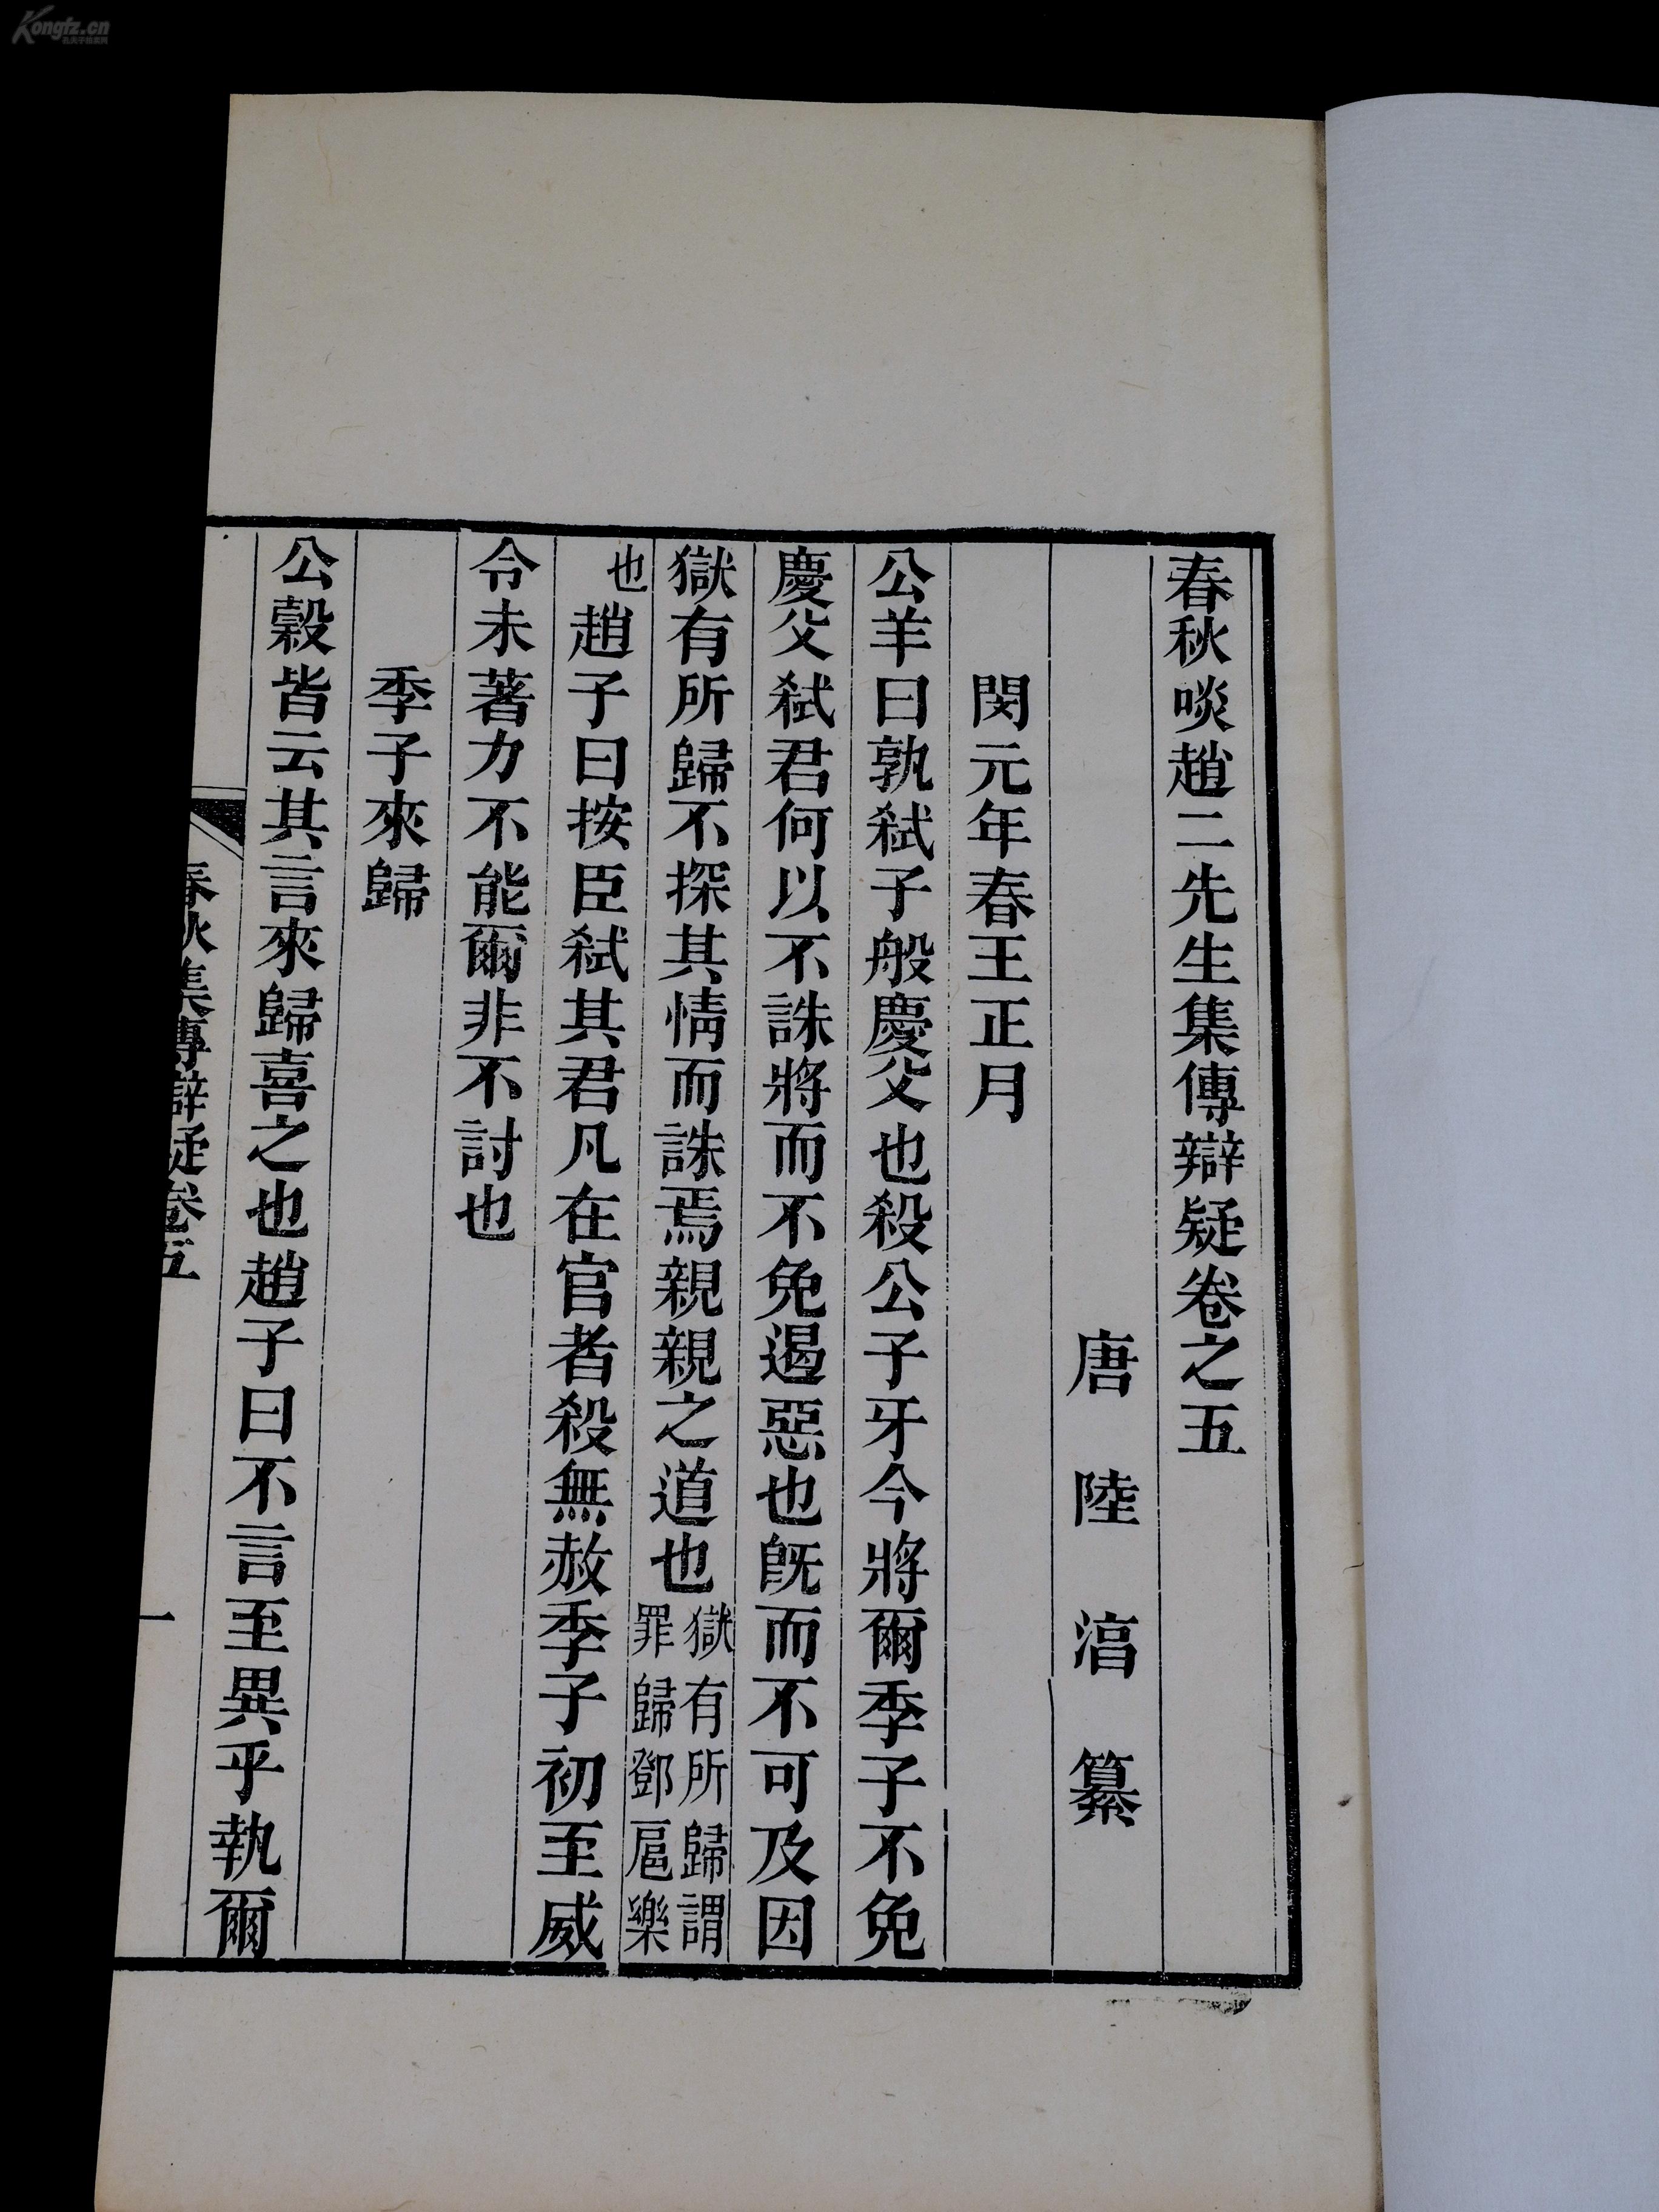 春秋啖趙二先生集傳辯疑卷之五
唐陸淳纂
閔元年春王正月
公羊曰孰弑子般慶父也殺公子牙今將爾季子不免
慶父弑君何以不誅將而不免遏惡也旣而不可及因
獄有所歸不探其情而誅焉親親之道也獄有所歸謂罪歸鄧扈樂
也趙子曰按臣弑其君凡在官者殺無赦季子初至威
令未著力不能爾非不討也
季子來歸
公穀皆云其言來歸喜之也趙子曰不言至異乎執爾
春秋集傳辯疑卷五
一
Kongfz.cn